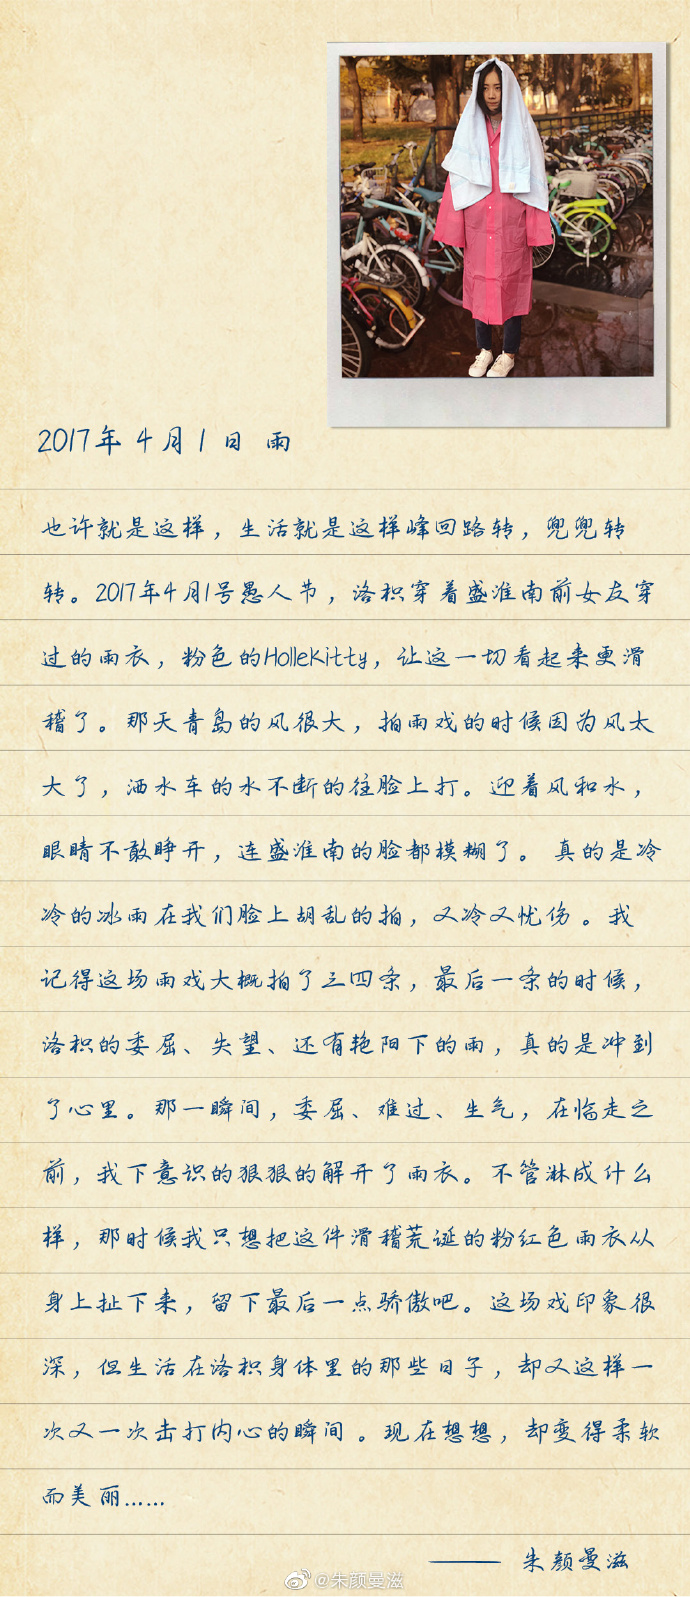 2017年 4月1日 雨
也许就是这样，生活就是这样峰回路转，兜兜转
转。2017年4月1号愚人节，洛枳穿着盛淮南前女友穿
过的雨衣，粉色的HolleKitty，让这一切看起来更滑
稽了。那天青岛的风很大，拍雨戏的时候因为风太
大了，洒水车的水不断的往脸上打。迎着风和水，
眼睛不敢睁开，连盛淮南的脸都模糊了。 真的是冷
冷的冰雨在我们脸上胡乱的拍，又冷又忧伤 。我
记得这场雨戏大概拍了三四条，最后一条的时候，
洛枳的委屈、失望、还有艳阳下的雨，真的是冲到
了心里。那一瞬间，委屈、难过、生气，在临走之
前，我下意识的狠狠的解开了雨衣。不管淋成什么
样，那时候我只想把这件滑稽荒诞的粉红色雨衣从
身上扯下来，留下最后一点骄傲吧。这场戏印象很
深，但生活在洛枳身体里的那些日子，却又这样一
次又一次击打内心的瞬间 。现在想想，却变得柔软
而美丽……
—— 朱颜曼滋
@朱颜曼滋